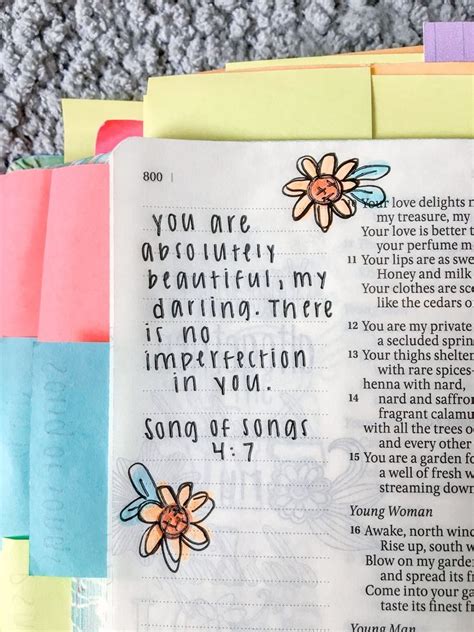 800
you are
absolutely
beautiful, my
darling. There
is no
imperfection
in you.
Song of Songs
4:7
10 Your love delights
my treasure, my
Your love is better
your perfume
11 Your lips are as
Honey and milk
Your clothes are
like the cedars
12 You are my private
a secluded
13 Your thighs shelter
with rare spices-
henna with nard,
14 nard and saffron
fragrant
with all the trees
and every other
15 You are a garden
a well of fresh
streaming down
Young Woman
16 Awake, north
Rise up, south
Blow on my garden
and spread its
Come into your
taste its finest